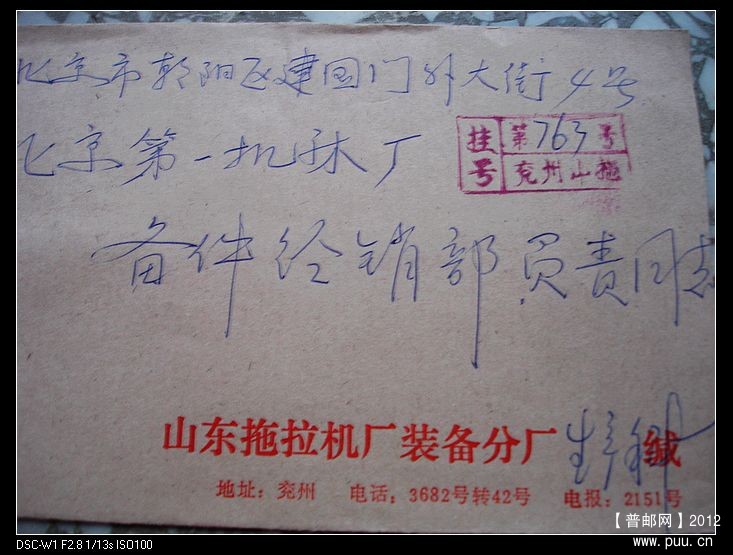 北京市朝阳区建国门外大街4号
北京第一机床厂
挂号 第763号
兖州山拖
备件经销部负责同志
山东拖拉机厂装备分厂 生产科 缄
地址：兖州 电话：3682号转42号 电报：2151号
【普邮网】2012
www.puu.cn
DSC-W1 F2.8 1/13s ISO100